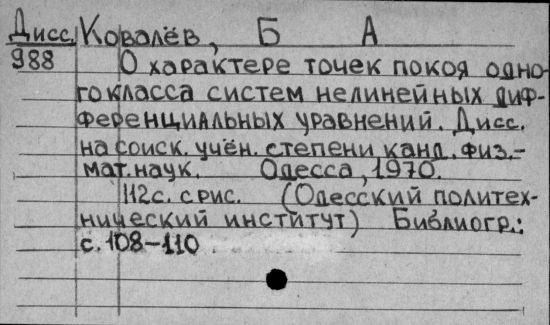 Дисс. Ковалёв, Б А
988 О характере точек покоя одно-
го класса систем нелинейных диф-
ференциальных уравнений. Дисс.
на соиск. учён. степени канд. физ.-
мат. наук. Одесса, 1970.
112с. с рис. (Одесский политех-
нический институт) Библиогр.:
с. 108-110